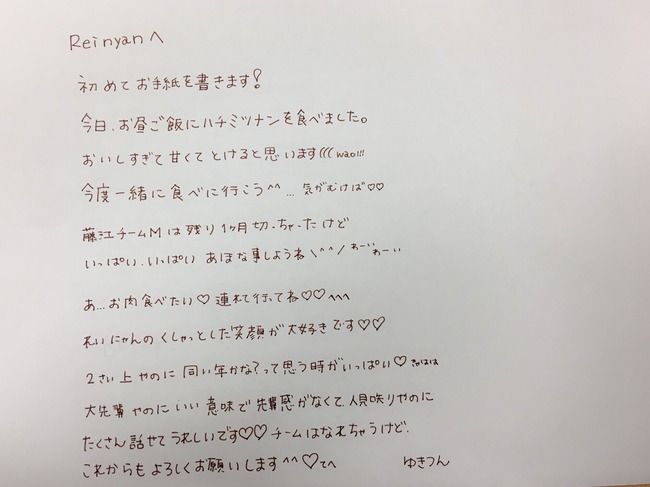 Reinyanへ
初めてお手紙を書きます!
今日、お昼ご飯にハチミツナンを食べました。
おいしすぎて甘くてとけると思います(((wao!!!
今度一緒に食べに行こう^^...気がむけば♡♡
藤江チームMは残り1ヶ月切っちゃったけど
いっぱい、いっぱいあほな事しようね\^^/わーいわーい
あ...お肉食べたい♡連れて行ってね♡♡^^^
れいにゃんのくしゃっとした笑顔が大好きです♡♡
2さい上やのに同い年かな?って思う時がいっぱい♡
大先輩やのにいい意味で先輩感がなくて、人見知りやのに
たくさん話せてうれしいです♡♡チームはなれちゃうけど、
これからもよろしくお願いします^^♡てへ ゆきつん